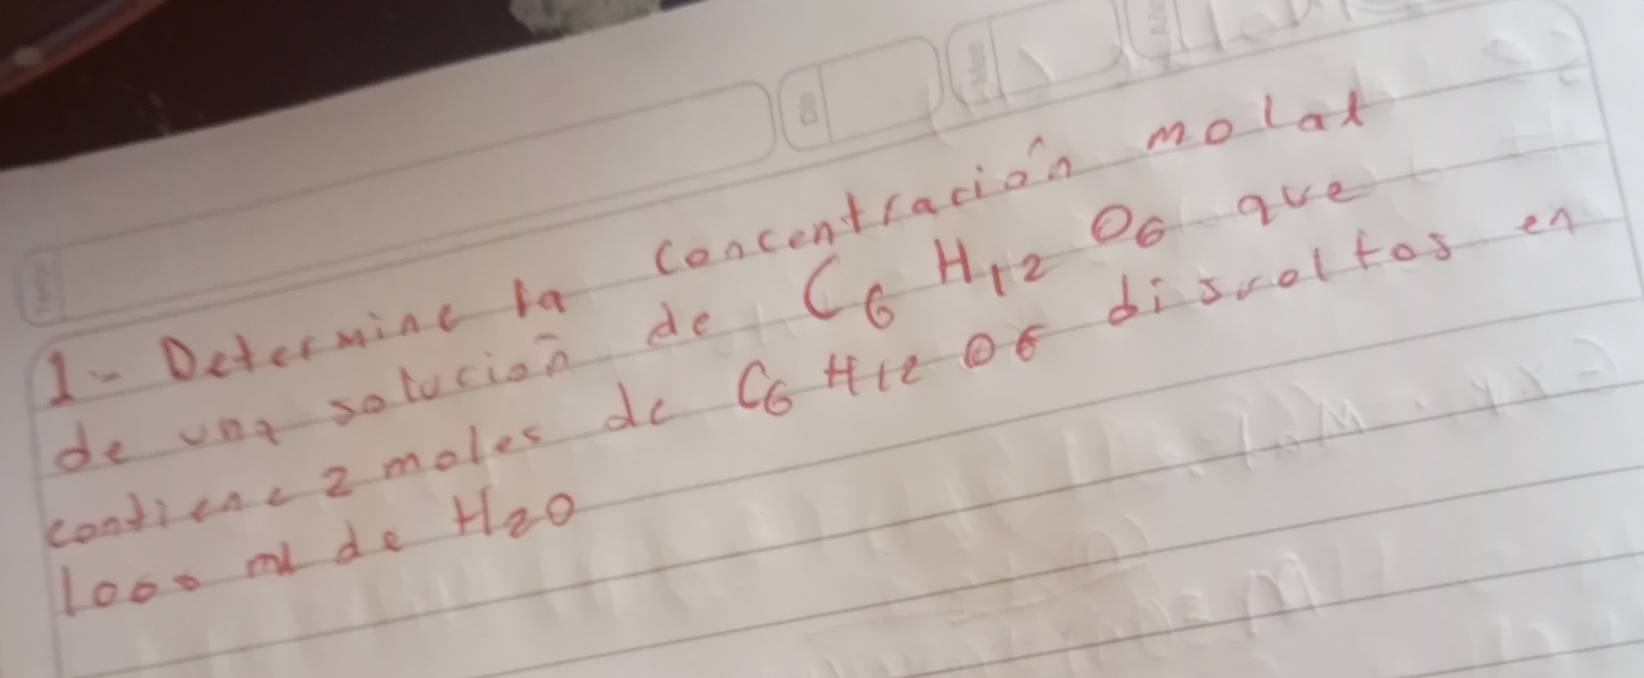 1- Determine la concentración molal
de una solución de C6 H12 O6 que
contiene 2 moles de C6 H12 O6 disueltos en
1000 ml de H2O